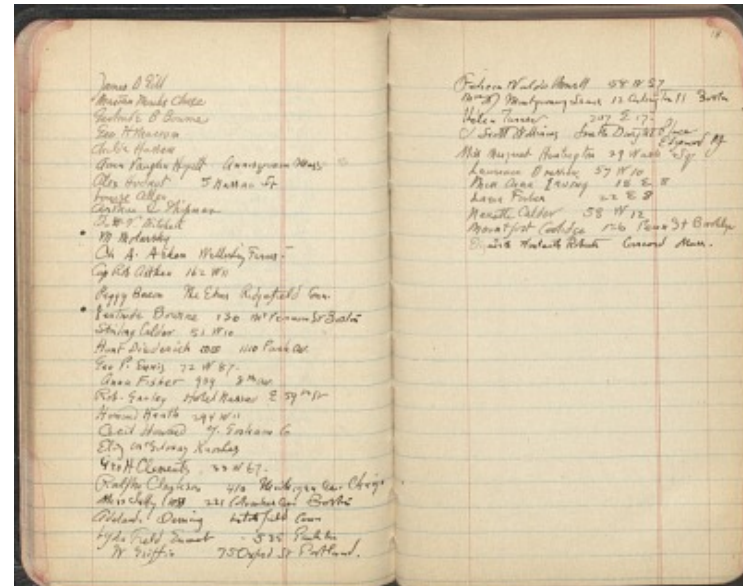 James D Gill
Martha Marks Chase
Gertrude B Bourne
Geo H Pearson
Childe Hassam
Anna Vaughn Hyatt Annisquam Mass
Alex 5 Nassau St
Louise Allen
Arthur L Shipman
Mitchell
M Molarsky
Ch A. Aiken Wellesley Farms
Rob Aitken 162 W 11
Peggy Bacon The Elms Ridgefield Conn.
Gertrude Bourne 130 Mt Vernon St Boston
Stirling Calder 51 W 10
Hunt Diederich 1110 Park Av.
Geo P. Ennis 72 W 87.
Anna Fisher 939 8th Av.
Rob. Hotel E 59th St
Howard Heath 294 W 11
Cecil Howard Gorham Co
Eliz McGilvray Knowles
Geo H Clements 33 W 67.
Ralph Clarkson 410 Michigan Av. Chicago
Miss Sally Cross 221 Columbus Av Boston
Adelaide Deming Litchfield Conn
Lydia Field Emmet 535
W Griffin 75 Oxford St Portland.
14
58 W 57
Montgomery Sears 12 Arlington St Boston
Helen Turner 207 E 17.
J Scott Williams South Dwight Place
Englewood NJ
Miss Margaret Huntington 29 Wash Sq.
Laurence 57 W 10
Miss Anna 18 E 8
22 E 8
Nanette Calder 58 W 12
Mountfort Coolidge 126 Penn St Brooklyn
Elizabeth Wentworth Roberts Concord Mass.